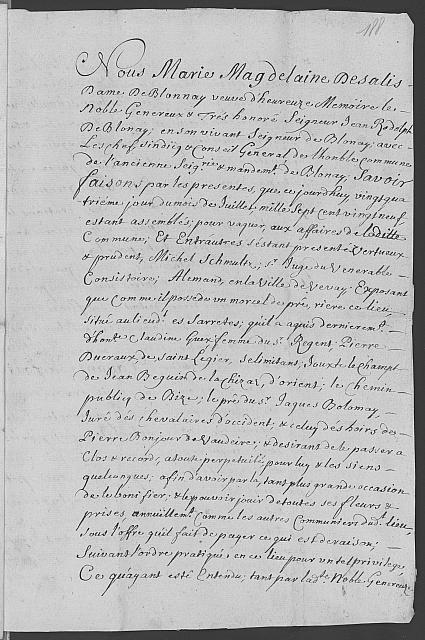 188
Nous Marie Magdelaine Desalis
Dame DeBlonnay veuve d'heureuze Memoire le
Noble Genereux & Trés honoré Seigneur Jean Rodolph
DeBlonay; en son vivant Seigneur de Blonay; avec
Les chef sindicq & Conseil General de l'honble commune
de l'ancienne Seig.rie & mandem.t de Blonay, Savoir
faisons par les presentes, que ce jourdhuy vingt qua
trième jour du mois de Juillet mille Sept Cent vingt neuf
estant assemblés; pour vaquer, aux affaires de laditte
Commune; Et Entrautres s'estant presenté Vertueux
& prudent, Michel Schmultz; s.r Juge du Venerable
Consistoire; Alemand, en la Ville de Vevay; Exposant
que comme il possède un morcel de pré, rière ce lieu
situé au lieu dit es Sarretes; qu'il a aquis dernierem.t
d'hon.te Claudine Guex femme du s.r Regent, Pierre
Ducraux, de Saint Legier, se limitant, Jouxte le champt
de Jean Beguin de la chizaz, d'orient; le Chemin
publicq de Bize; le pré du s.r Jaques Bolomay
Juré dés chevalaires d'occident; & celuy dés hoirs de
Pierre Bonjour de Vaudeire; & desirant de le passer a
Clos & record, a toute perpetuité, pour luy & les siens
quelcunques; afin d'avoir par la, tant plus grande occasion
de le bonifier; & le pouvoir jouir de toutes ses fleurs &
prises annuillem.t Comme les autres Communiers dud.t lieu,
sous l'offre qu'il fait de payer ce qui est de raison;
Suivant l'ordre pratiqué, en ce lieu pour un tel privilege
Ce qu'ayant esté Entendu; tant par lad.te Noble Genereuze